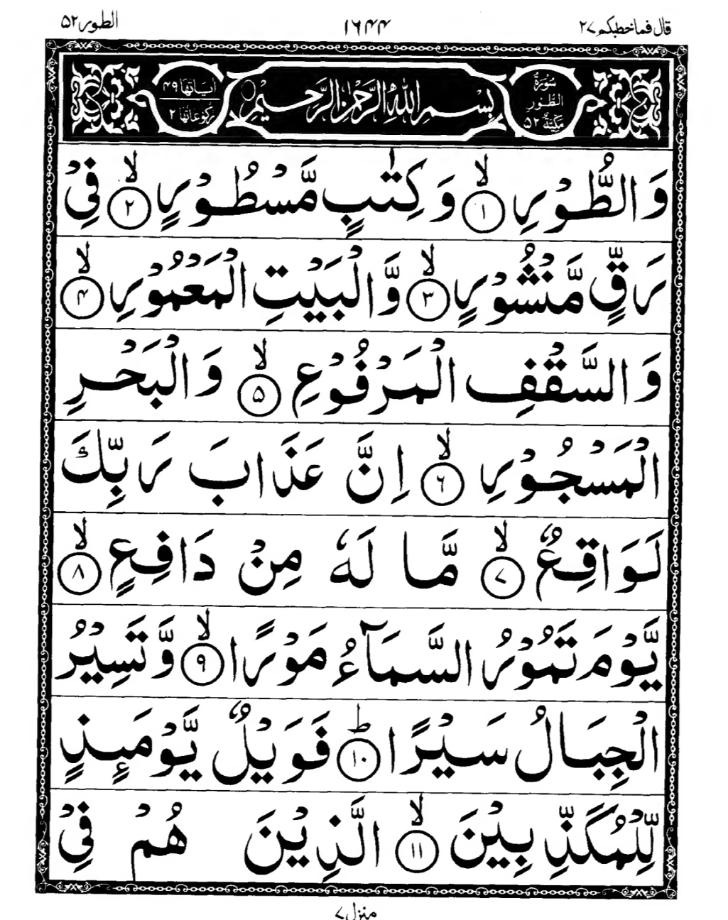 قال فما خطبكم ۲۷ ۱۶۴۴ الطور ۵۲
سُوْرَةُ الطُّوْرِ مَكِّيَّةٌ ۵۲ بِسْمِ اللّٰهِ الرَّحْمٰنِ الرَّحِيْمِ اٰيَاتُهَا ۴۹ رُكُوْعَاتُهَا ۲
وَ الطُّوْرِ ۙ﴿۱﴾ وَ كِتٰبٍ مَّسْطُوْرٍ ۙ﴿۲﴾ فِیْ
رَقٍّ مَّنْشُوْرٍ ۙ﴿۳﴾ وَّ الْبَیْتِ الْمَعْمُوْرِ ۙ﴿۴﴾
وَ السَّقْفِ الْمَرْفُوْعِ ۙ﴿۵﴾ وَ الْبَحْرِ
الْمَسْجُوْرِ ۙ﴿۶﴾ اِنَّ عَذَابَ رَبِّكَ
لَوَاقِعٌ ۙ﴿۷﴾ مَّا لَهٗ مِنْ دَافِعٍ ۙ﴿۸﴾
یَّوْمَ تَمُوْرُ السَّمَآءُ مَوْرًا ۙ﴿۹﴾ وَّ تَسِیْرُ
الْجِبَالُ سَیْرًا ؕ﴿۱۰﴾ فَوَیْلٌ یَّوْمَىِٕذٍ
لِّلْمُكَذِّبِیْنَ ۙ﴿۱۱﴾ الَّذِیْنَ هُمْ فِیْ
منزل ۷